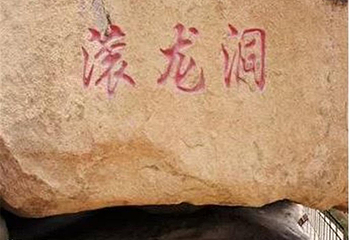 滚龙洞